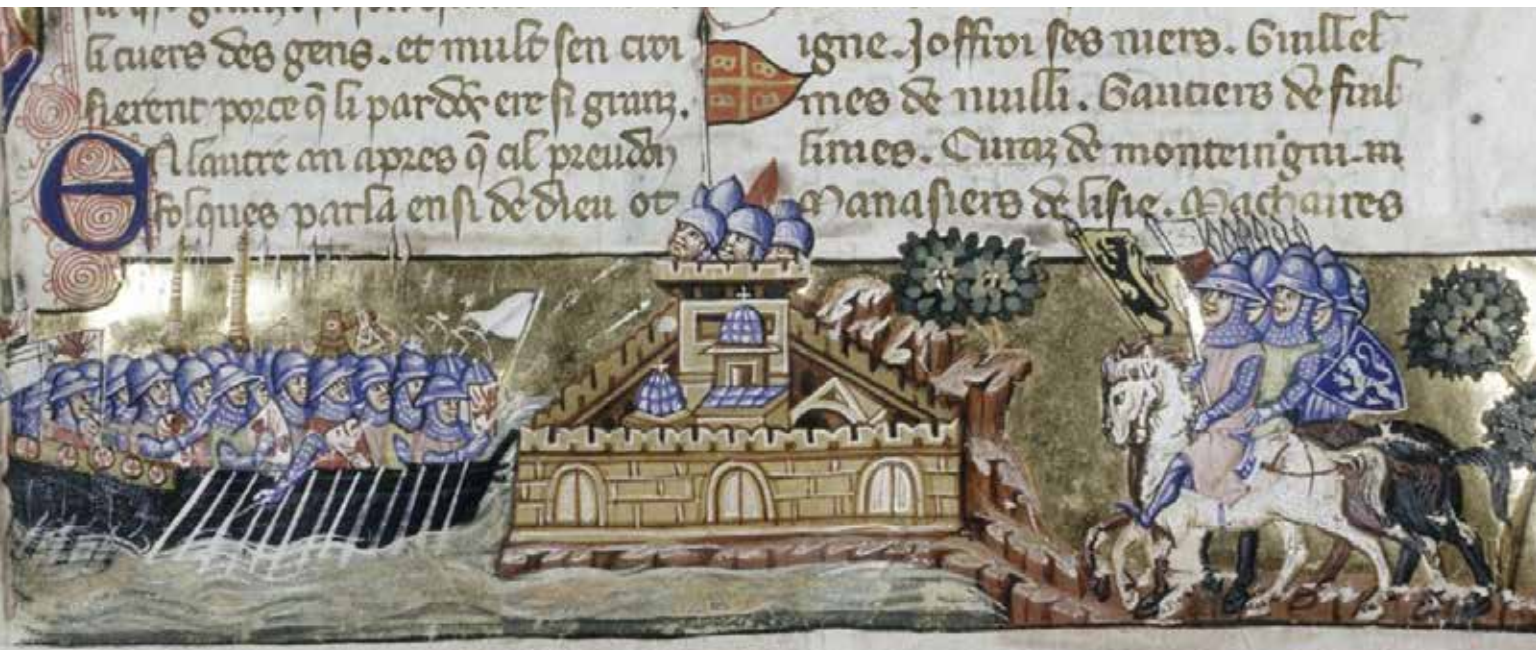 li cuers des gens. et mult sen croi
sierent porce q̃ li pardōs ere si granz.
EN lautre an apres q̃ cil preudom
folques parla ensi de dieu ot
igne. Joffroi ses niers. Guillel
mes de nuilli. Gautiers de fuil
linies. Euraz de
Manasiers de lisle. Machaires